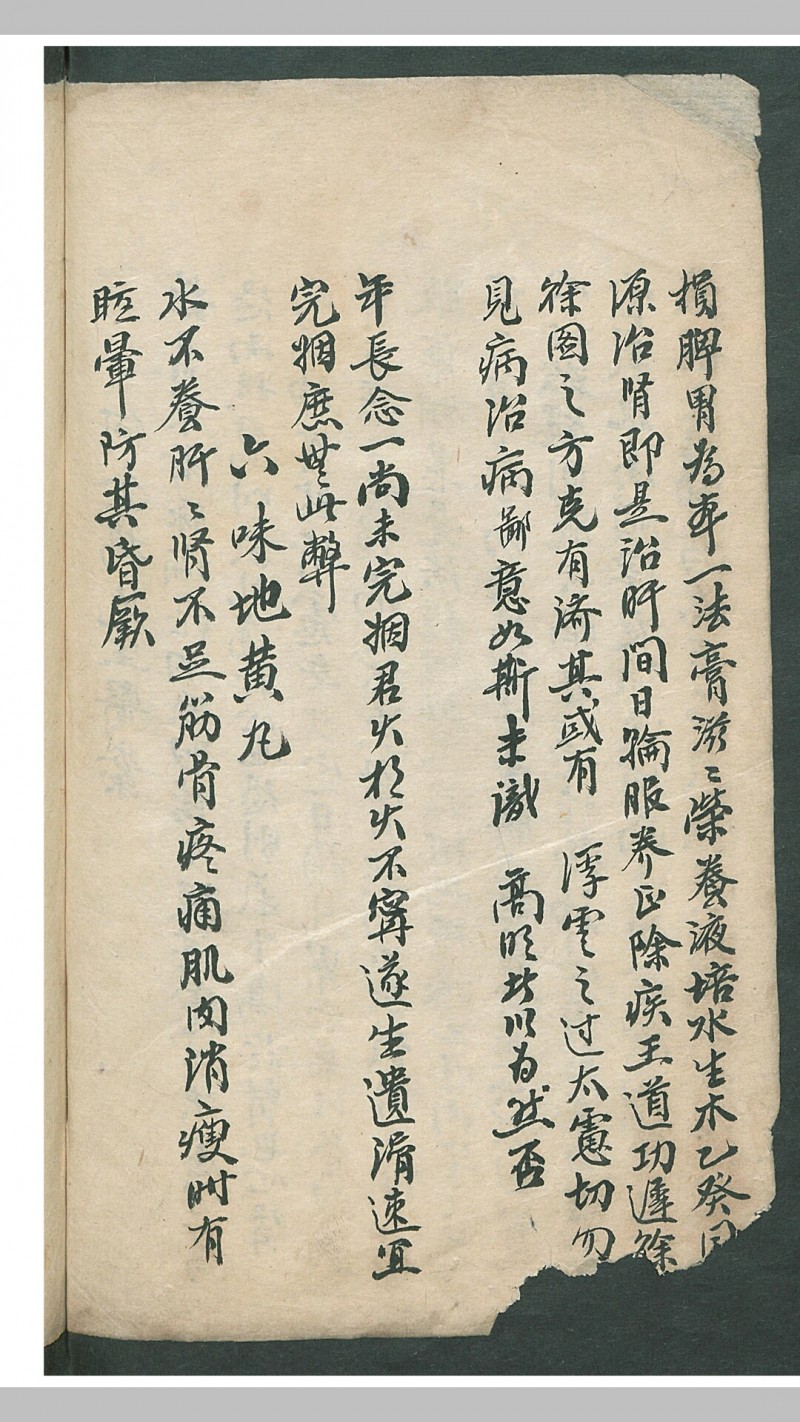 損脾胃為本一法膏滋〻榮養液培水生木乙癸同
源治腎即是治肝間日輪服养正除疾王道功遲徐
徐图之方克有済其或有 浮雲之过太虛切勿
見病治病鄙意如斯未識 高明以為然否
年長念一尚未完姻君火相火不寧遂生遺滑速宜
完姻庶無此弊
六味地黄丸
水不養肝〻腎不足筋骨疼痛肌肉消瘦时有
眩暈防其昏厥